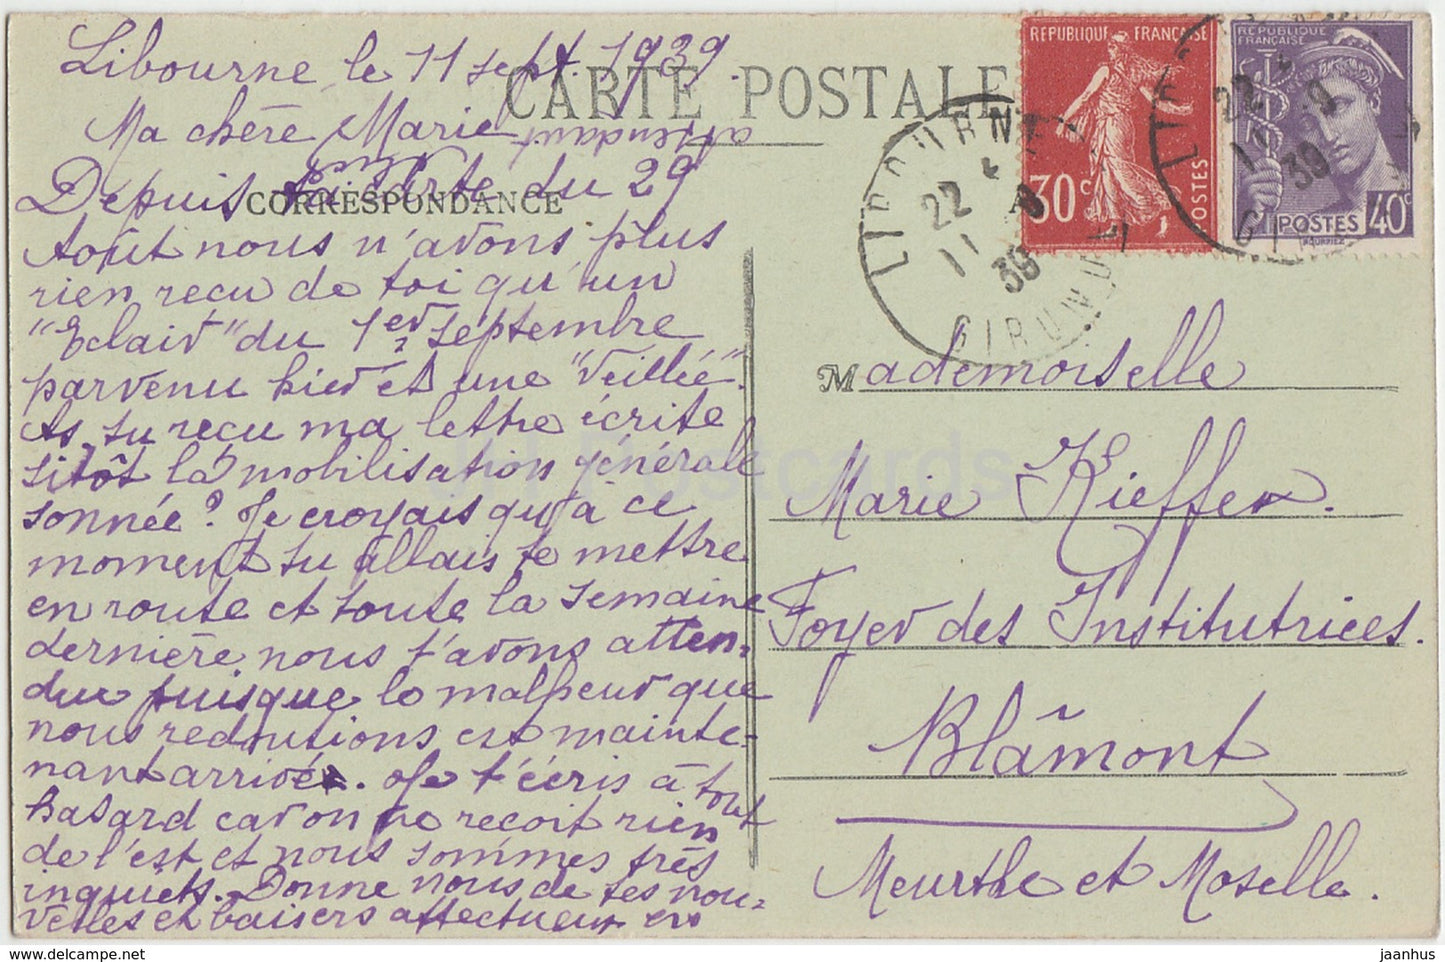 Libourne le 11 sept. 1939.
CARTE POSTALE
Ma chère Marie
attendant
Depuis ta carte du 29
CORRESPONDANCE
Août nous n'avons plus
rien reçu de toi qu'un
"Eclair" du 1er septembre
parvenu hier et une "Veillée".
As tu reçu ma lettre écrite
sitôt la mobilisation générale
sonnée? Je croyais qu'à ce
moment tu allais te mettre
en route et toute la semaine
dernière nous t'avons atten-
du puisque le malheur que
nous redoutions est mainte-
nant arrivé. Je t'écris à tout
hasard car on ne reçoit rien
de l'est et nous sommes très
inquiets. Donne nous de tes nou-
velles et baisers affectueux
RÉPUBLIQUE FRANÇAISE
30c
POSTES
REPUBLIQUE FRANÇAISE
POSTES 40c
LIBOURNE
22
11 9
39
GIRONDE
22
11 9
39
Mademoiselle
Marie Kieffer.
Foyer des Institutrices.
Blâmont
Meurthe et Moselle.
JH Postcards
jaanhus